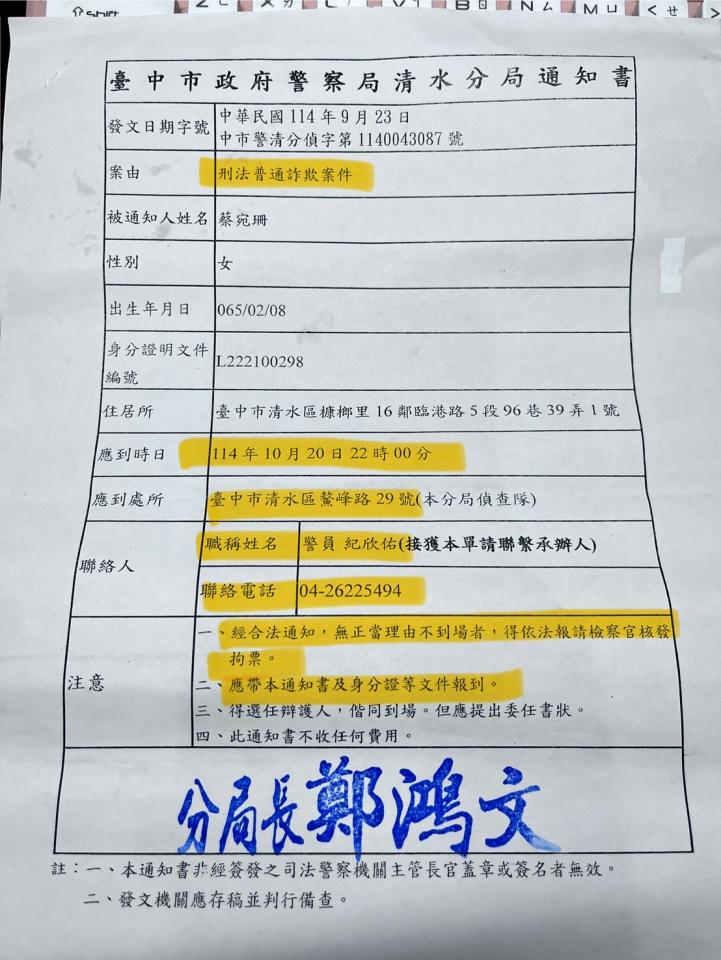 ⇧Shift
臺中市政府警察局清水分局通知書
發文日期字號
中華民國 114 年 9 月 23 日
中市警清分偵字第 1140043087 號
案由
刑法普通詐欺案件
被通知人姓名
蔡宛珊
性別
女
出生年月日
065/02/08
身分證明文件
編號
L222100298
住居所
臺中市清水區槺榔里 16 鄰臨港路 5 段 96 巷 39 弄 1 號
應到時日
114 年 10 月 20 日 22 時 00 分
應到處所
臺中市清水區鰲峰路 29 號(本分局偵查隊)
聯絡人
職稱姓名
警員 紀欣佑(接獲本單請聯繫承辦人)
聯絡電話
04-26225494
注意
一、經合法通知，無正當理由不到場者，得依法報請檢察官核發
拘票。
二、應帶本通知書及身分證等文件報到。
三、得選任辯護人，偕同到場。但應提出委任書狀。
四、此通知書不收任何費用。
分局長鄭鴻文
註：一、本通知書非經簽發之司法警察機關主管長官蓋章或簽名者無效。
二、發文機關應存稿並判行備查。